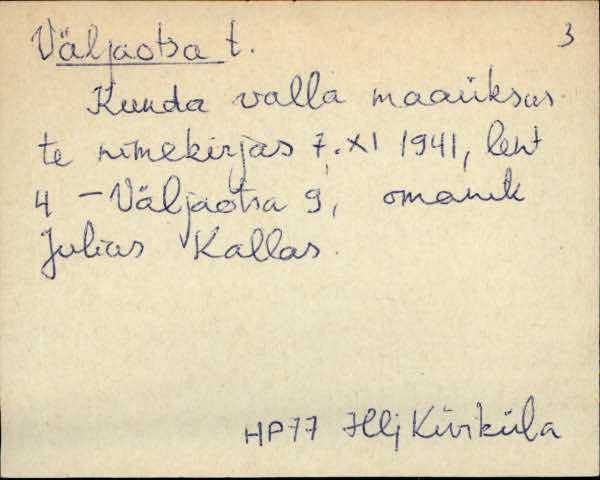 Väljaotsa t. 3
Kunda valla maaüksus-
te nimekirjas 7. XI 1941, leht
4 – Väljaotsa 9, omanik
Julius Kallas.
HP77 Kiviküla